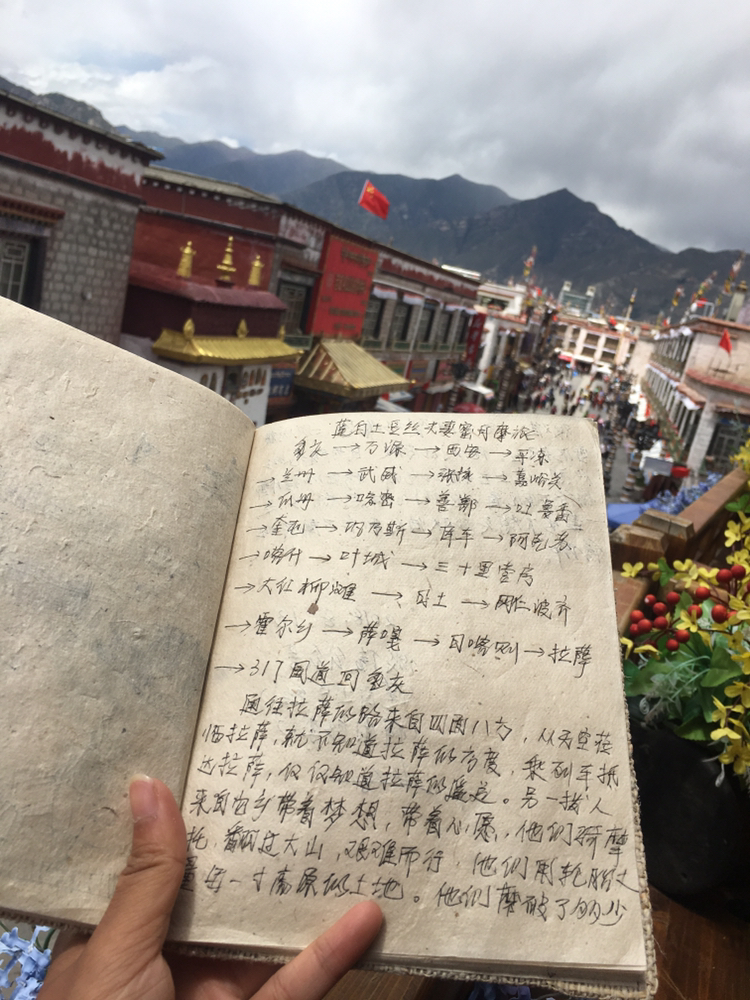 蓝白土豆丝夫妻蜜月摩旅
重庆→万源→西安→平凉
→兰州→武威→张掖→嘉峪关
→瓜州→哈密→鄯善→吐鲁番
→奎屯→→库车→阿克苏
→喀什→叶城→三十里营房
→大红柳滩→日土→冈仁波齐
→霍尔乡→萨嘎→日喀则→拉萨
→317国道回重庆
通往拉萨的路来自四面八方，从天空莅
临拉萨，就不知道拉萨的高度，乘列车抵
达拉萨，仅仅知道拉萨的遥远。另一拨人
来自他乡带着梦想，带着心愿，他们骑摩
托，翻过大山，艰难而行，他们用轮胎丈
量每一寸高原的土地。他们磨破了多少